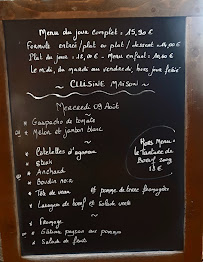 Menu du jour complet = 15,90 €
Formule entrée/plat ou plat/dessert
Plat du jour = Menu enfant
Le midi, du mardi au vendredi, hors jour férié
~ CUISINE MAISON ~
Mercredi 09 Août
* Gaspacho de tomate
* Melon et jambon blanc
* Côtelettes d'agneau
* Steak
* Anchaud
* Boudin noir
* Tête de veau
et pomme de terre
* Lasagne de bœuf et salade verte
* Fromage
* Gâteau
aux pommes
* Salade de fruits
Hors Menu:
le Tartare de
Bœuf
18 €